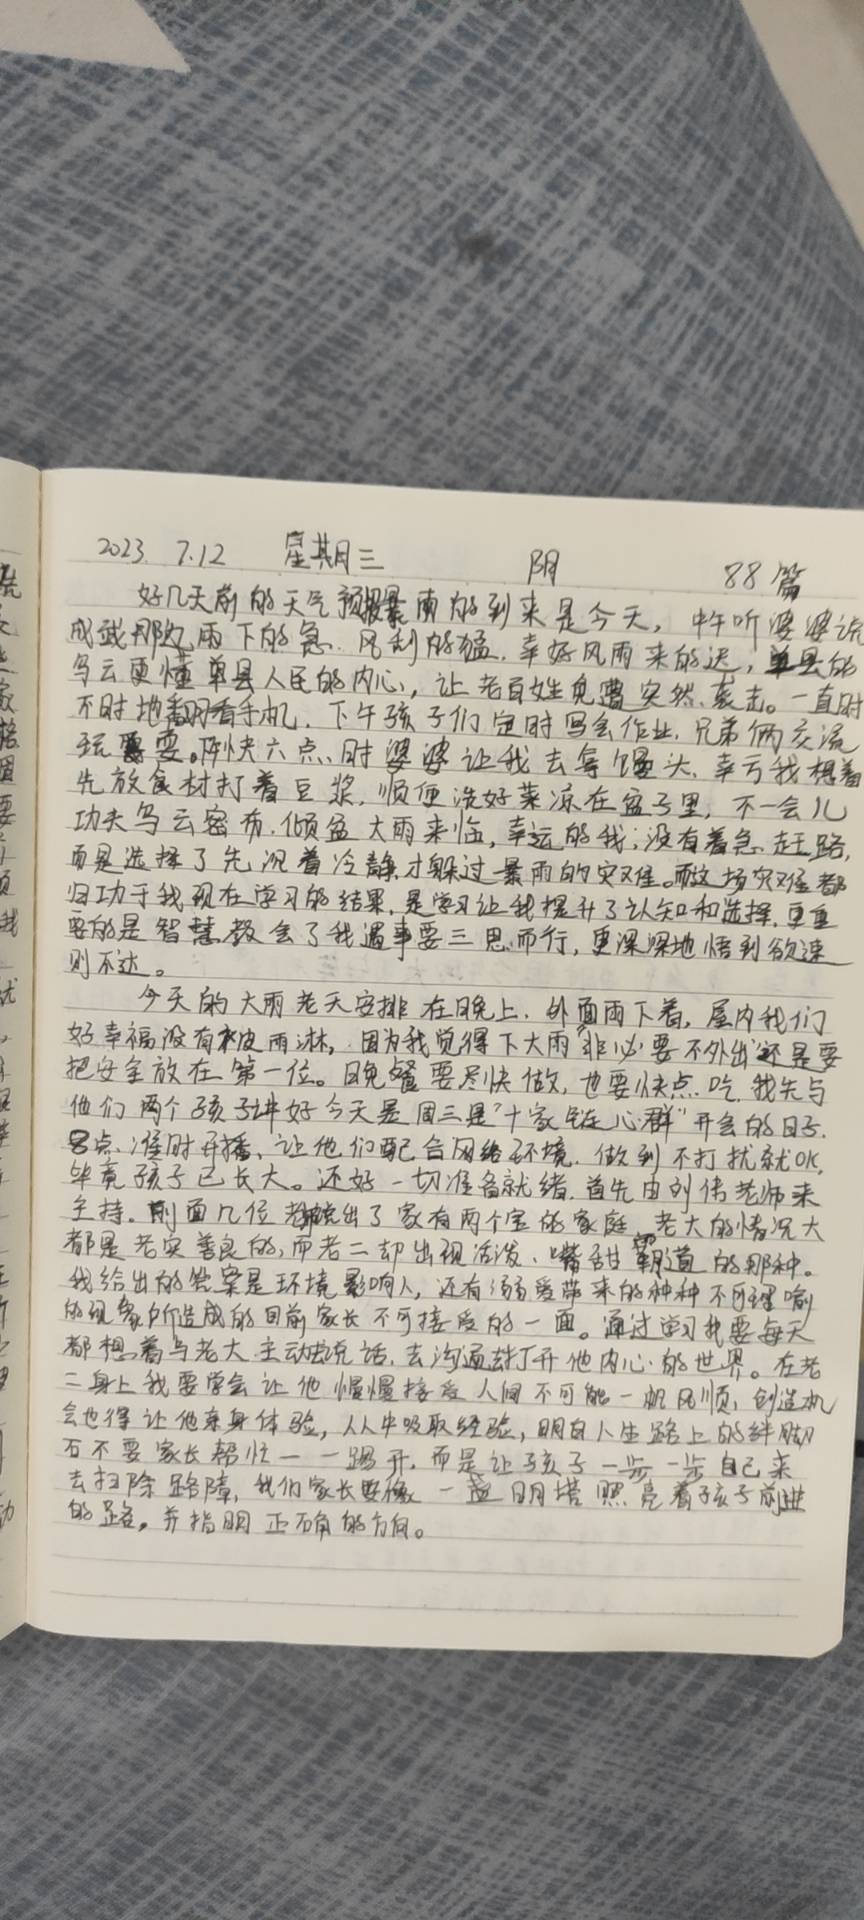 2023. 7.12 星期三 阴 88篇
好几天前的天气预报暴雨的到来是今天，中午听婆婆说
成武那边雨下的急．风刮的猛．幸好风雨来的迟，单县的
乌云更懂单县人民的内心，让老百姓免遭突然袭击。一直时
不时地翻看手机．下午孩子们定时写会作业．兄弟俩交流
玩耍。傍快六点．时婆婆让我去拿馒头．幸亏我想着
先放食材打着豆浆．顺便洗好菜凉在盆子里，不一会儿
功夫乌云密布．倾盆大雨来临，幸运的我；没有着急赶路，
而是选择了先沉着冷静才躲过暴雨的灾难。而这场灾难都
归功于我现在学习的结果．是学习让我提升了认知和选择．更重
要的是智慧教会了我遇事要三思而行，更深深地悟到欲速
则不达。
今天的大雨老天安排在晚上．外面雨下着，屋内我们
好幸福没有被雨淋，因为我觉得下大雨“非必要不外出”还是要
把安全放在第一位。晚餐要尽快做，也要快点吃．我先与
他们两个孩子讲好今天是周三是“十家链心群”开会的日子．
8点准时开播、让他们配合网络环境．做到不打扰就OK，
毕竟孩子已长大。还好一切准备就绪．首先由刘伟老师来
主持．前面几位老师说出了家有两个宝的家庭．老大的情况大
都是老实善良的，而老二却出现活泼、嘴甜霸道的那种。
我给出的答案是环境影响人，还有溺爱带来的种种不可理喻
的现象所造成的目前家长不可接受的一面。通过学习我要每天
都想着与老大主动去说话．去沟通去打开他内心的世界。在老
二身上我要学会让他慢慢接受人间不可能一帆风顺，创造机
会也得让他亲身体验，从中吸取经验，明白人生路上的绊脚
石不要家长帮忙一一踢开．而是让孩子一步一步自己来
去扫除路障，我们家长要像一盏明塔照亮着孩子前进
的路，并指明正确的方向。